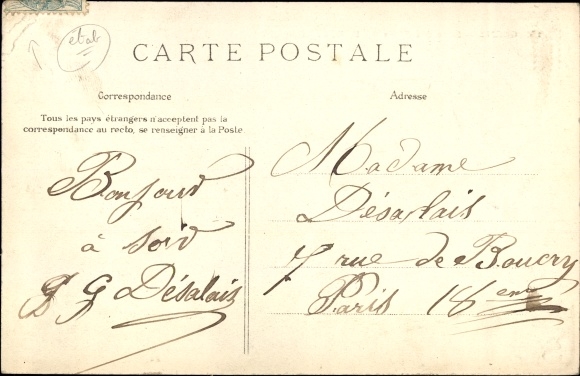 etab
CARTE POSTALE
Correspondance
Tous les pays étrangers n'acceptent pas la
correspondance au recto, se renseigner à la Poste
Bonjour
à soir
G Désalais
Adresse
Madame
Désalais
7 rue de Boucry
Paris 18eme